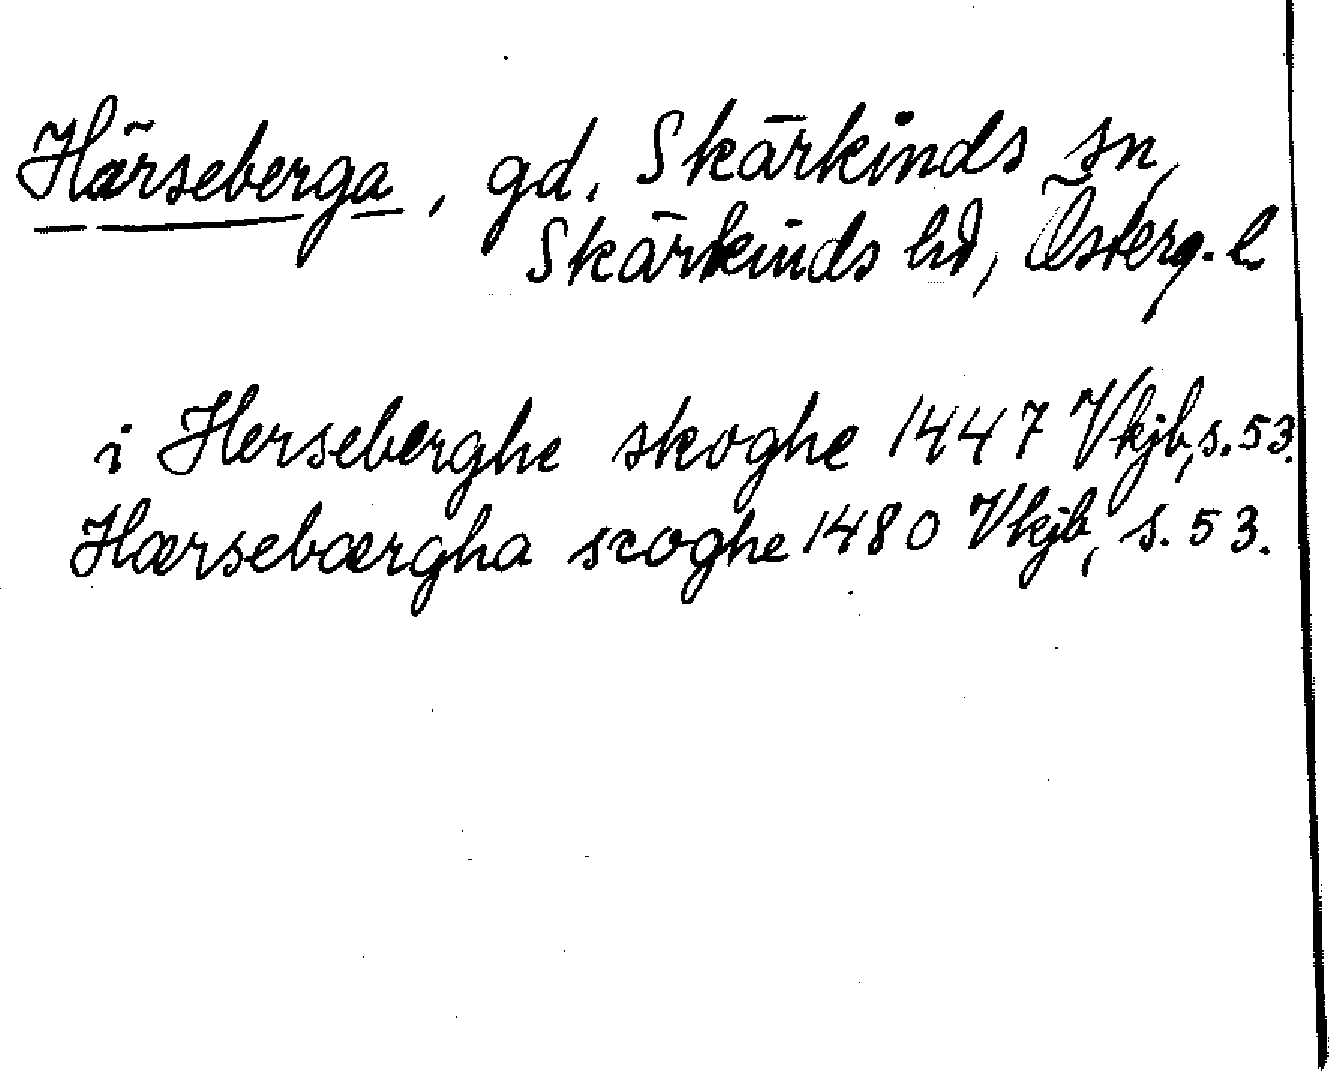 Härseberga, gd. Skärkinds sn,
Skärkinds hd, Österg. l
i Herseberghe skoghe 1447 Vkjb, s. 53.
Hærsebærgha scoghe 1480 Vkjb, s. 53.